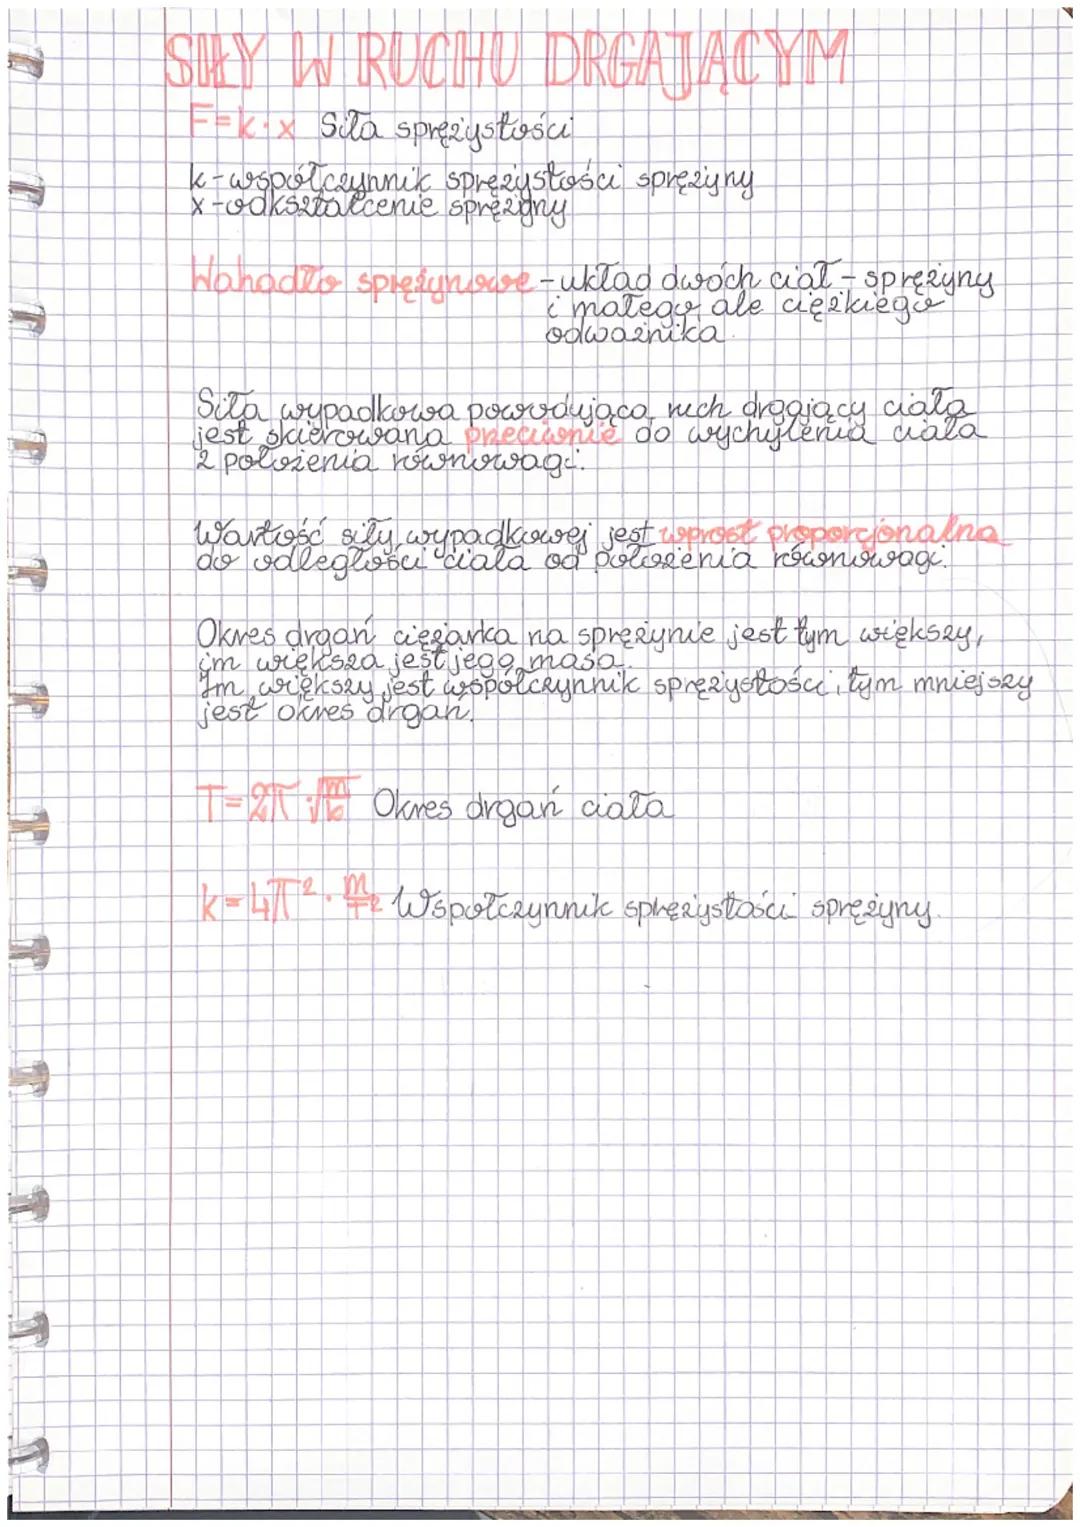 SIŁY W RUCHU DRGAJĄCYM
F=k·x Siła sprężystości
k-współczynnik sprężystości sprężyny
x-odkształcenie sprężyny
Wahadło sprężynowe - układ dwóch ciał - sprężyny
i małego, ale ciężkiego
odważnika.
Siła wypadkowa powodująca ruch drgający ciała
jest skierowana przeciwnie do wychylenia ciała
z położenia równowagi.
Wartość siły wypadkowej jest wprost proporcjonalna
do odległości ciała od położenia równowagi.
Okres drgań ciężarka na sprężynie jest tym większy,
im większa jest jego masa.
Im większy jest współczynnik sprężystości, tym mniejszy
jest okres drgań.
T=2π·√m/k Okres drgań ciała
k=4π²·m/T² Współczynnik sprężystości sprężyny.